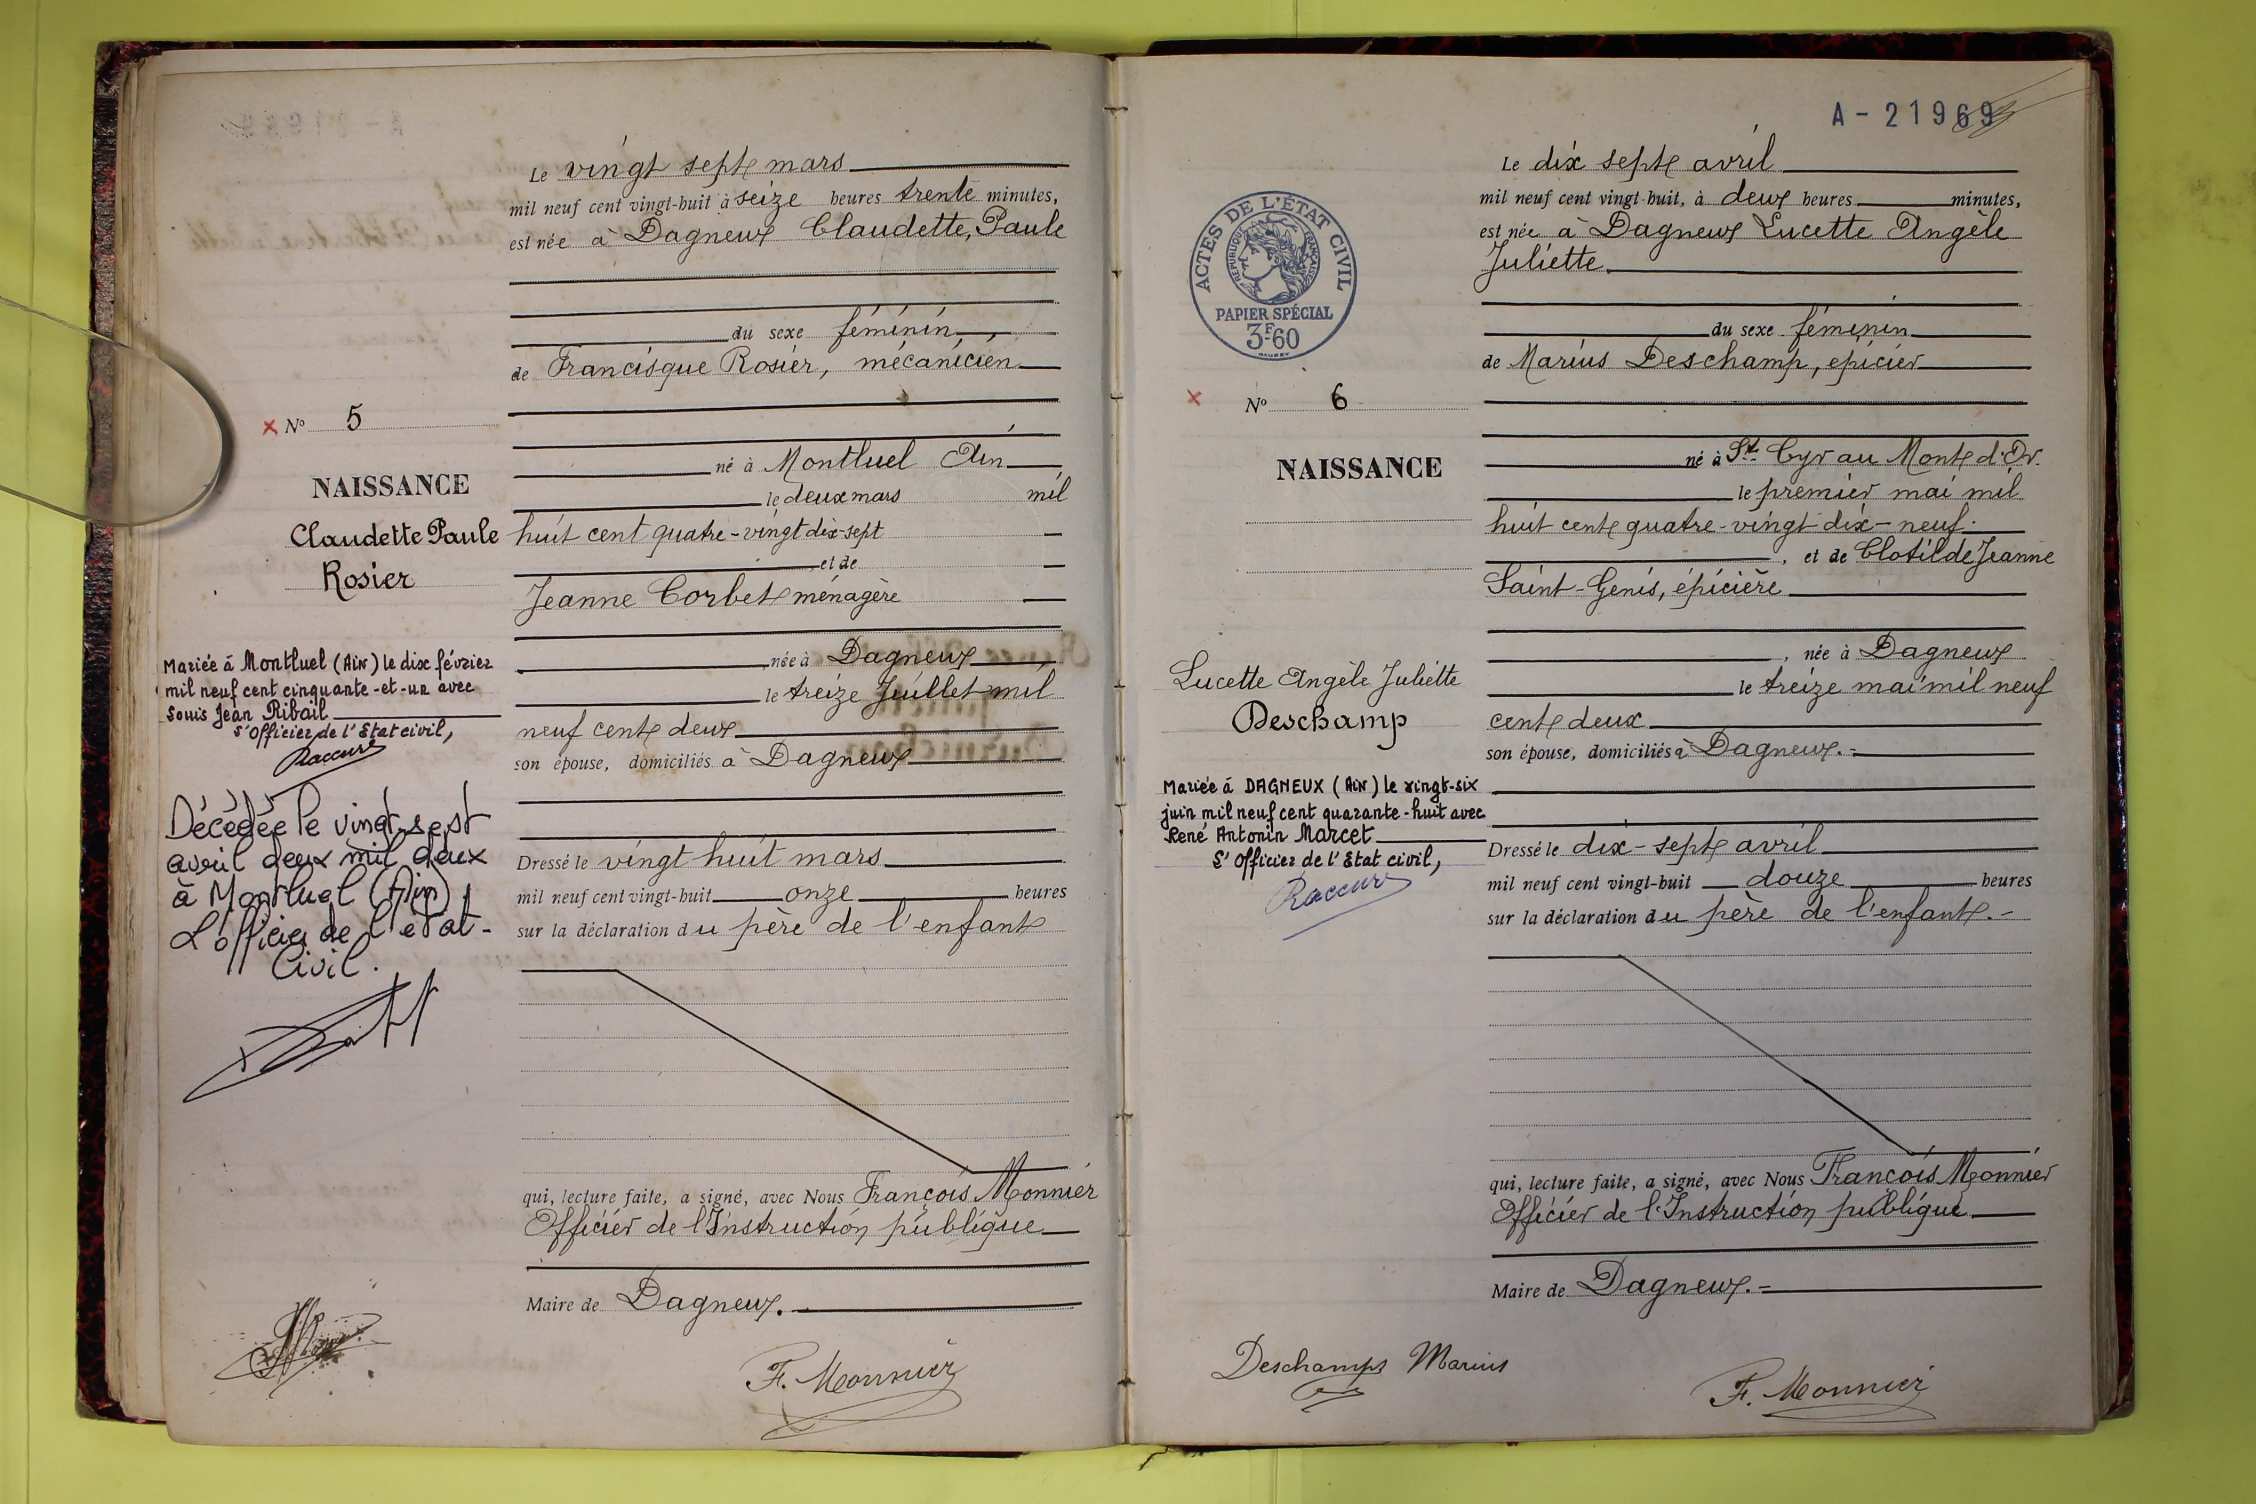 Le vingt sept mars
mil neuf cent vingt-huit à seize heures trente minutes,
est née à Dagneux Claudette, Paule
du sexe féminin
de Francisque Rosier, mécanicien
× No 5
né à Montluel Ain
NAISSANCE
le deux mars mil
Claudette Paule
huit cent quatre-vingt dix-sept
Rosier
et de
Jeanne Corbet ménagère
née à Dagneux
Mariée à Montluel (Ain) le dix février
mil neuf cent cinquante-et-un avec
Louis Jean Ribail
L'Officier de l'Etat civil,
Raccurt
le treize Juillet mil
neuf cent deux
son épouse, domiciliés à Dagneux
Décédée le vingt-sept
avril deux mil deux
à Montluel (Ain)
L'officier de l'etat-
Civil.
Dressé le vingt huit mars
mil neuf cent vingt-huit onze heures
sur la déclaration du père de l'enfant
qui, lecture faite, a signé, avec Nous François Monnier
Officier de l'Instruction publique
Maire de Dagneux.
F. Monnier
A-21969
Le dix sept avril
mil neuf cent vingt-huit, à deux heures minutes,
est née à Dagneux Lucette Angèle
Juliette
ACTES DE L'ÉTAT CIVIL
RÉPUBLIQUE FRANÇAISE
PAPIER SPÉCIAL
3F.60
du sexe féminin
de Marius Deschamp, épicier
× No 6
né à St. Cyr au Mont d'Or.
NAISSANCE
le premier mai mil
huit cent quatre-vingt-dix-neuf.
, et de Clotilde Jeanne
Saint-Genis, épicière
, née à Dagneux
Lucette Angèle Juliette
Deschamp
le treize mai mil neuf
cent deux
son épouse, domiciliés à Dagneux.
Mariée à DAGNEUX (Ain) le vingt-six
juin mil neuf cent quarante-huit avec
René Antonin Marcet
L'Officier de l'Etat civil,
Raccurt
Dressé le dix-sept avril
mil neuf cent vingt-huit douze heures
sur la déclaration du père de l'enfant.
qui, lecture faite, a signé, avec Nous François Monnier
Officier de l'Instruction publique
Maire de Dagneux.
Deschamps Marius
F. Monnier